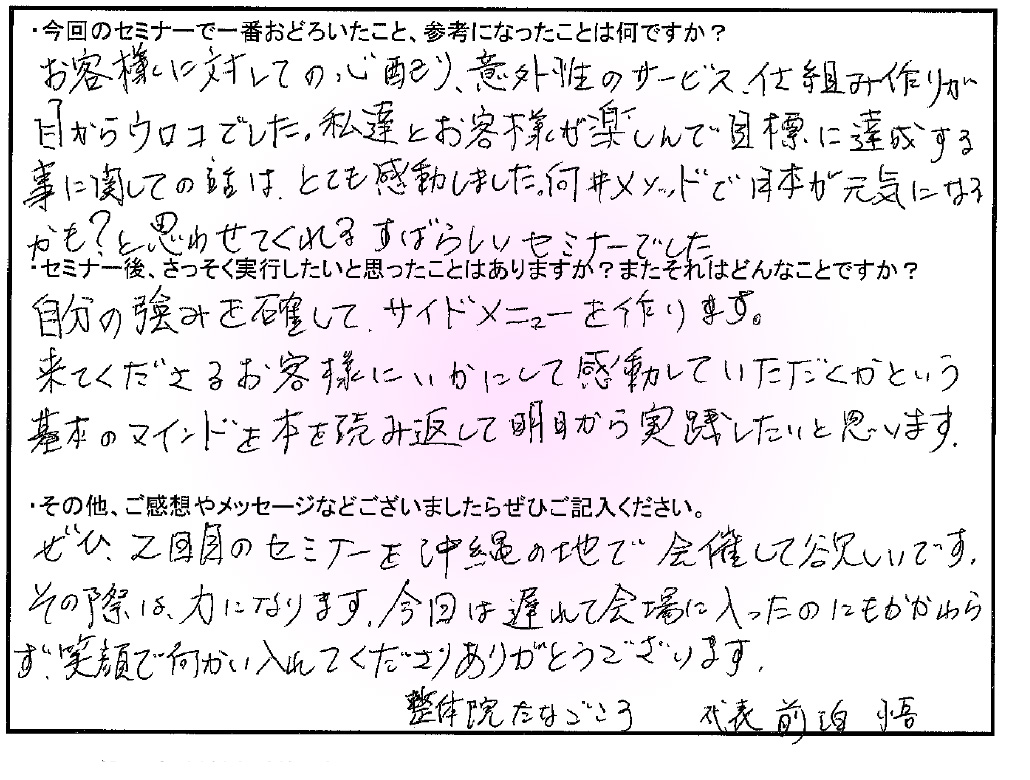 ・今回のセミナーで一番おどろいたこと、参考になったことは何ですか？
お客様に対しての心配り、意外性のサービス、仕組み作りが
目からウロコでした。私達とお客様が楽しんで目標に達成する
事に関しての話は、とても感動しました。何井メソッドで日本が元気になる
かも？と思わせてくれるすばらしいセミナーでした
・セミナー後、さっそく実行したいと思ったことはありますか？またそれはどんなことですか？
自分の強みを確して、サイドメニューを作ります。
来てくださるお客様にいかにして感動していただくかという
基本のマインドを本を読み返して明日から実践したいと思います.
・その他、ご感想やメッセージなどございましたらぜひご記入ください。
ぜひ、2回目のセミナーを沖縄の地で会催して欲しいです.
その際は、力になります.今回は遅れて会場に入ったのにもかかわら
ず、笑顔で迎い入れてくださりありがとうございます.
整体院たなごころ 代表 前泊 悟